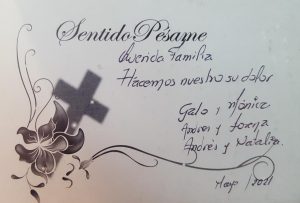 Sentido Pésame
Querida Familia
Hacemos nuestro su dolor
Galo y Mónica
Andres y
Andrés y Natalia.
Mayo / 2021